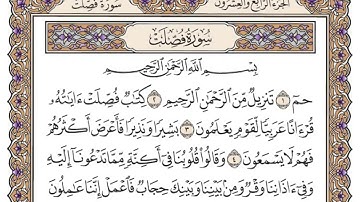 الجزء الرابع والعشرون سورة فصلت
سُورَةُ فُصِّلَتْ
بِسْمِ ٱللَّهِ ٱلرَّحْمَٰنِ ٱلرَّحِيمِ
حمٓ ١ تَنزِيلٌ مِّنَ ٱلرَّحْمَٰنِ ٱلرَّحِيمِ ٢ كِتَٰبٌ فُصِّلَتْ ءَايَٰتُهُۥ
قُرْءَانًا عَرَبِيًّا لِّقَوْمٍ يَعْلَمُونَ ٣ بَشِيرًا وَنَذِيرًا فَأَعْرَضَ أَكْثَرُهُمْ
فَهُمْ لَا يَسْمَعُونَ ٤ وَقَالُوا۟ قُلُوبُنَا فِىٓ أَكِنَّةٍ مِّمَّا تَدْعُونَآ إِلَيْهِ
وَفِىٓ ءَاذَانِنَا وَقْرٌ وَمِنۢ بَيْنِنَا وَبَيْنِكَ حِجَابٌ فَٱعْمَلْ إِنَّنَا عَٰمِلُونَ